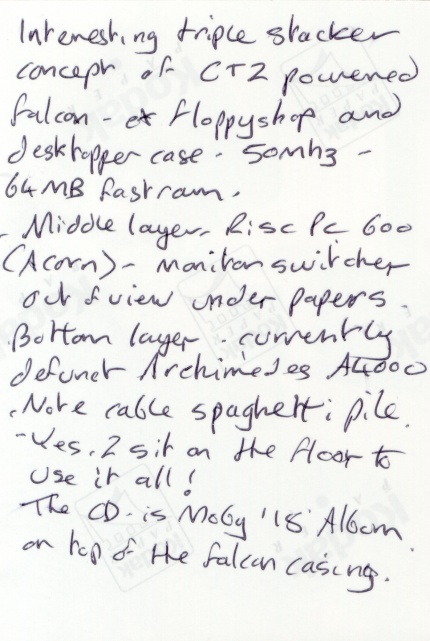 Interesting triple stacker
concept of CT2 powered
falcon - ex floppyshop and
desktopper case - 50Mhz -
64MB fastram.
- Middle layer - Risc Pc 600
(Acorn) - monitor switcher
out of view under papers.
Bottom layer - currently
defunct Archimedes A4000
- Note cable spaghetti pile.
- Yes, I sit on the floor to
use it all!
The CD is Moby '18' Album
on top of the falcon casing.
Kodak